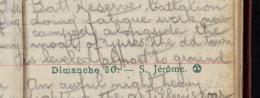 Batt reserve battalion
doing fatigue work now
camped alongside the
moat of Ypres the old town
is levelled almost to ground
Dimanche 30. — S. Jérôme.
An awful night heavy